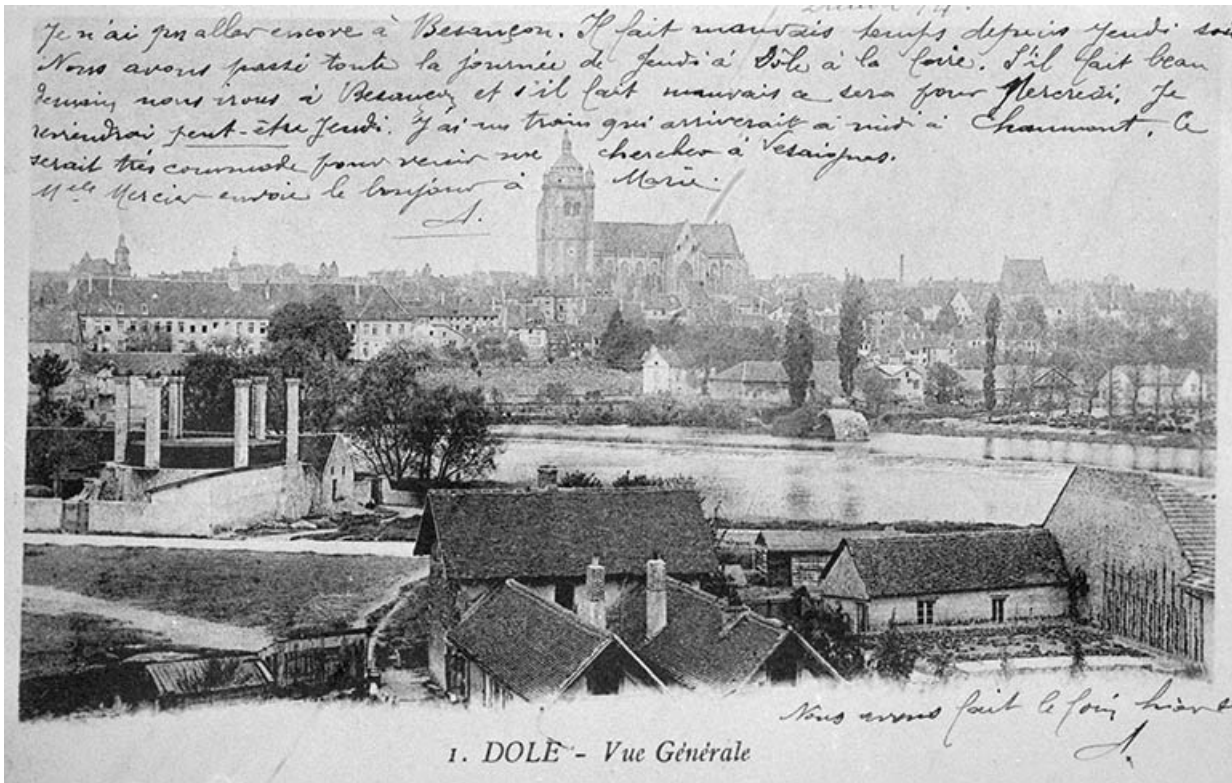 Je n'ai pu aller encore à Besançon. Il fait mauvais temps depuis Jeudi soir
Nous avons passé toute la journée de Jeudi à Dôle à la foire. S'il fait beau
demain nous irons à Besançon et s'il fait mauvais ce sera pour Mercredi. Je
reviendrai peut-être Jeudi. J'ai un train qui arriverait à midi à Chaumont. Ce
serait très commode pour venir me chercher à Vesaignes.
Melle Mercier envoie le bonjour à Marie.
A.
Nous avons fait le foin hier
A.
1. DOLE - Vue Générale